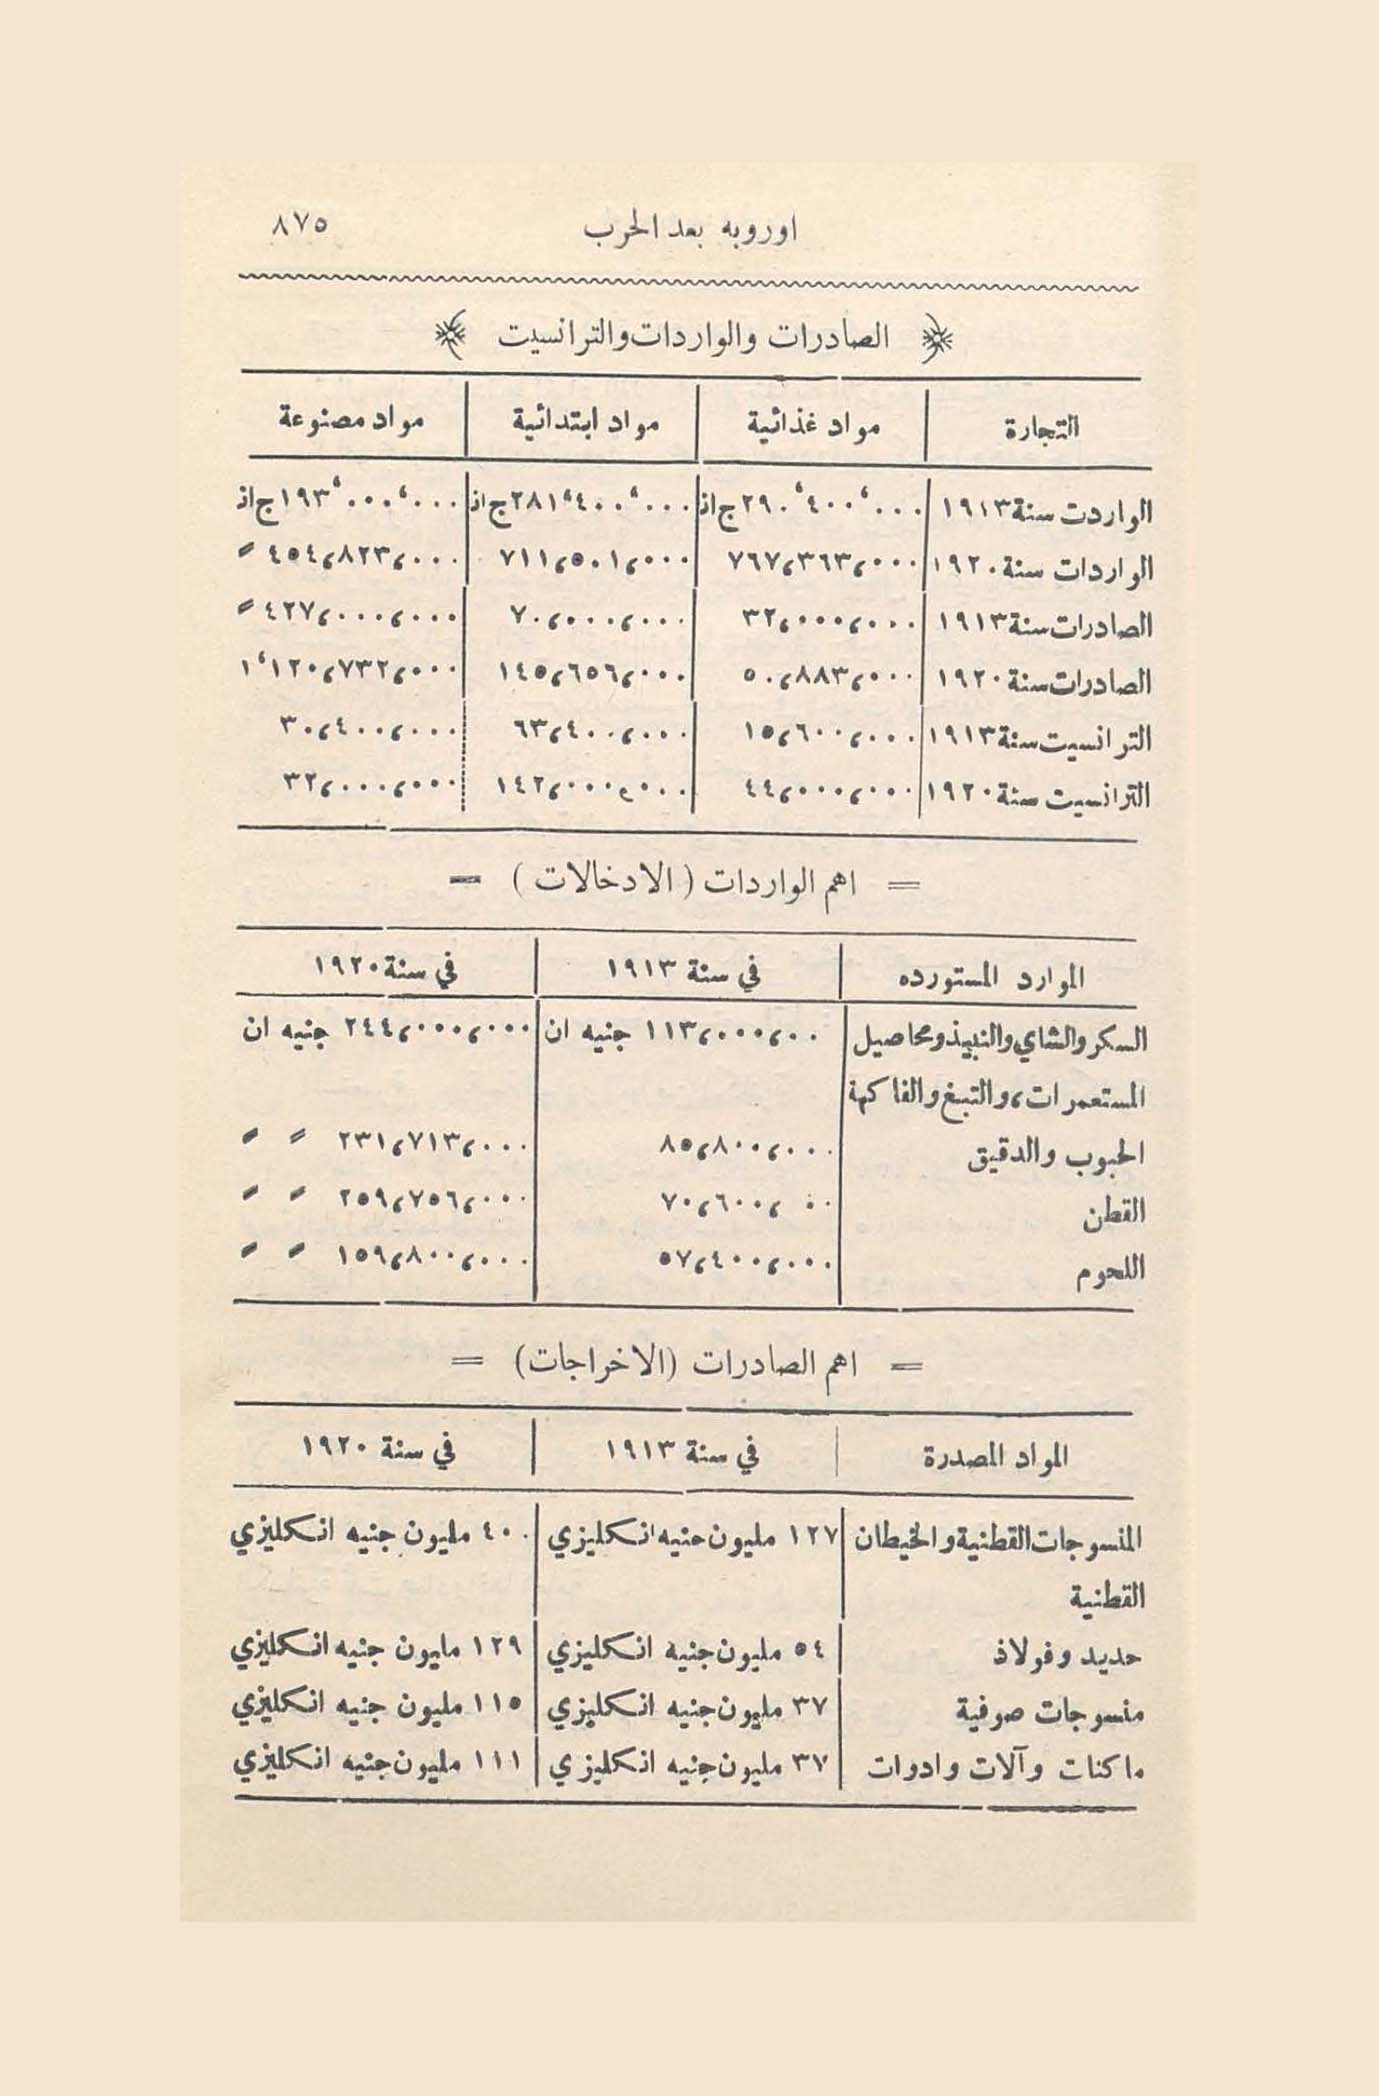 اوروبه بعد الحرب ٨٧٥
الصادرات والواردات والترانسيت
التجارة مواد غذائية مواد ابتدائية مواد مصنوعة
الواردت سنة ١٩١٣ ٢٩٠،٤٠٠،٠٠٠ ج ان ٢٨١،٤٠٠،٠٠٠ ج ان ١٩٣،٠٠٠،٠٠٠ ج ان
الواردات سنة ١٩٢٠ ٧٦٧،٣٦٣،٠٠٠ ٧١١،٥٠١،٠٠٠ ٤٥٤،٨٢٣،٠٠٠〃
الصادرات سنة ١٩١٣ ٣٢،٠٠٠،٠٠٠ ٧٠،٠٠٠،٠٠٠ ٤٢٧،٠٠٠،٠٠٠〃
الصادرات سنة ١٩٢٠ ٥٠،٨٨٣،٠٠٠ ١٤٥،٦٥٦،٠٠٠ ١،١٢٠،٧٣٢،٠٠٠
الترانسيت سنة ١٩١٣ ١٥،٦٠٠،٠٠٠ ٦٣،٤٠٠،٠٠٠ ٣٠،٤٠٠،٠٠٠
الترانسيت سنة ١٩٢٠ ٤٤،٠٠٠،٠٠٠ ١٤٢،٠٠٠،٠٠٠ ٣٢،٠٠٠،٠٠٠
= اهم الواردات (الادخالات) =
الموارد المستورده في سنة ١٩١٣ في سنة ١٩٢٠
السكر والشاي والنبيذ ومحاصيل ١١٣،٠٠٠،٠٠ جنيه ان ٢٤٤،٠٠٠،٠٠٠ جنيه ان
المستعمرات، والتبغ والفاكهة
الحبوب والدقيق ٨٥،٨٠٠،٠٠٠ ٢٣١،٧١٣،٠٠٠ 〃 〃
القطن ٧٠،٦٠٠،٠٠ ٢٥٩،٧٥٦،٠٠٠ 〃 〃
اللحوم ٥٧،٤٠٠،٠٠٠ ١٥٩،٨٠٠،٠٠٠ 〃 〃
= اهم الصادرات (الاخراجات) =
المواد المصدرة في سنة ١٩١٣ في سنة ١٩٢٠
المنسوجات القطنية والخيطان ١٢٧ مليون جنيه انكليزي ٤٠٠ مليون جنيه انكليزي
القطنية
حديد وفولاذ ٥٤ مليون جنيه انكليزي ١٢٩ مايون جنيه انكليزي
منسوجات صوفية ٣٧ مليون جنيه انكليزي ١١٥ مليون جنيه انكليزي
ماكنات وآلات وادوات ٣٧ مليون جنيه انكليزي ١١١ مليون جنيه انكليزي